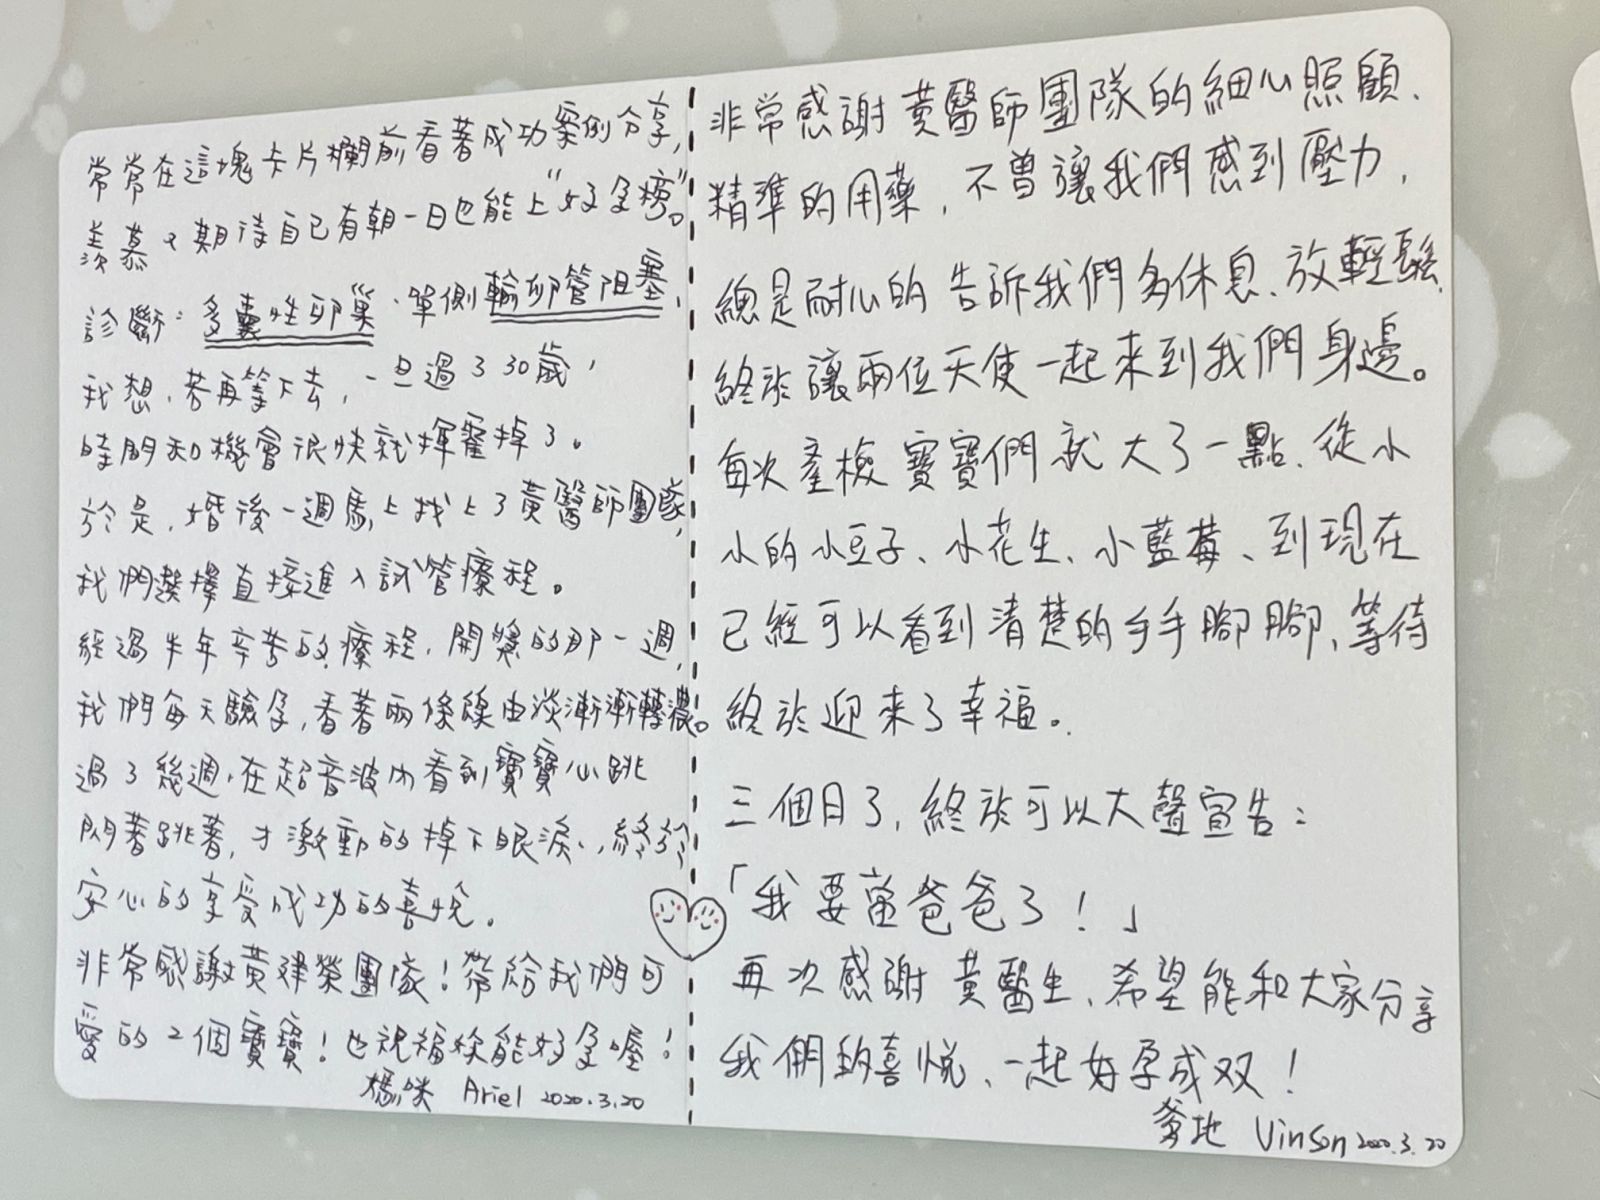 常常在這塊卡片欄前看著成功案例分享,
羨慕又期待自己有朝一日也能上"好孕榜"。
診斷:多囊性卵巢、單側輸卵管阻塞,
我想,若再等下去,一旦過了30歲,
時間和機會很快就揮霍掉了。
於是,婚後一週馬上找上了黃醫師團隊,
我們選擇直接進入試管療程。
經過半年辛苦的療程,開獎的那一週,
我們每天驗孕,看著兩條線由淡漸漸轉濃。
過了幾週,在超音波內看到寶寶心跳
閃著跳著,才激動的掉下眼淚,終於
安心的享受成功的喜悅。
非常感謝黃建榮團隊!帶給我們可
愛的2個寶寶!也祝福妳能好孕喔!
媽咪 Ariel 2020.3.20
非常感謝黃醫師團隊的細心照顧、
精準的用藥,不曾讓我們感到壓力,
總是耐心的告訴我們多休息、放輕鬆,
終於讓兩位天使一起來到我們身邊。
每次產檢寶寶們就大了一點、從小
小的小豆子、小花生、小藍莓、到現在
已經可以看到清楚的手手腳腳,等待
終於迎來了幸福。
三個月了,終於可以大聲宣告:
「我要當爸爸了!」
再次感謝黃醫生、希望能和大家分享
我們的喜悅、一起好孕成双!
爹地 Vinson 2020.3.20